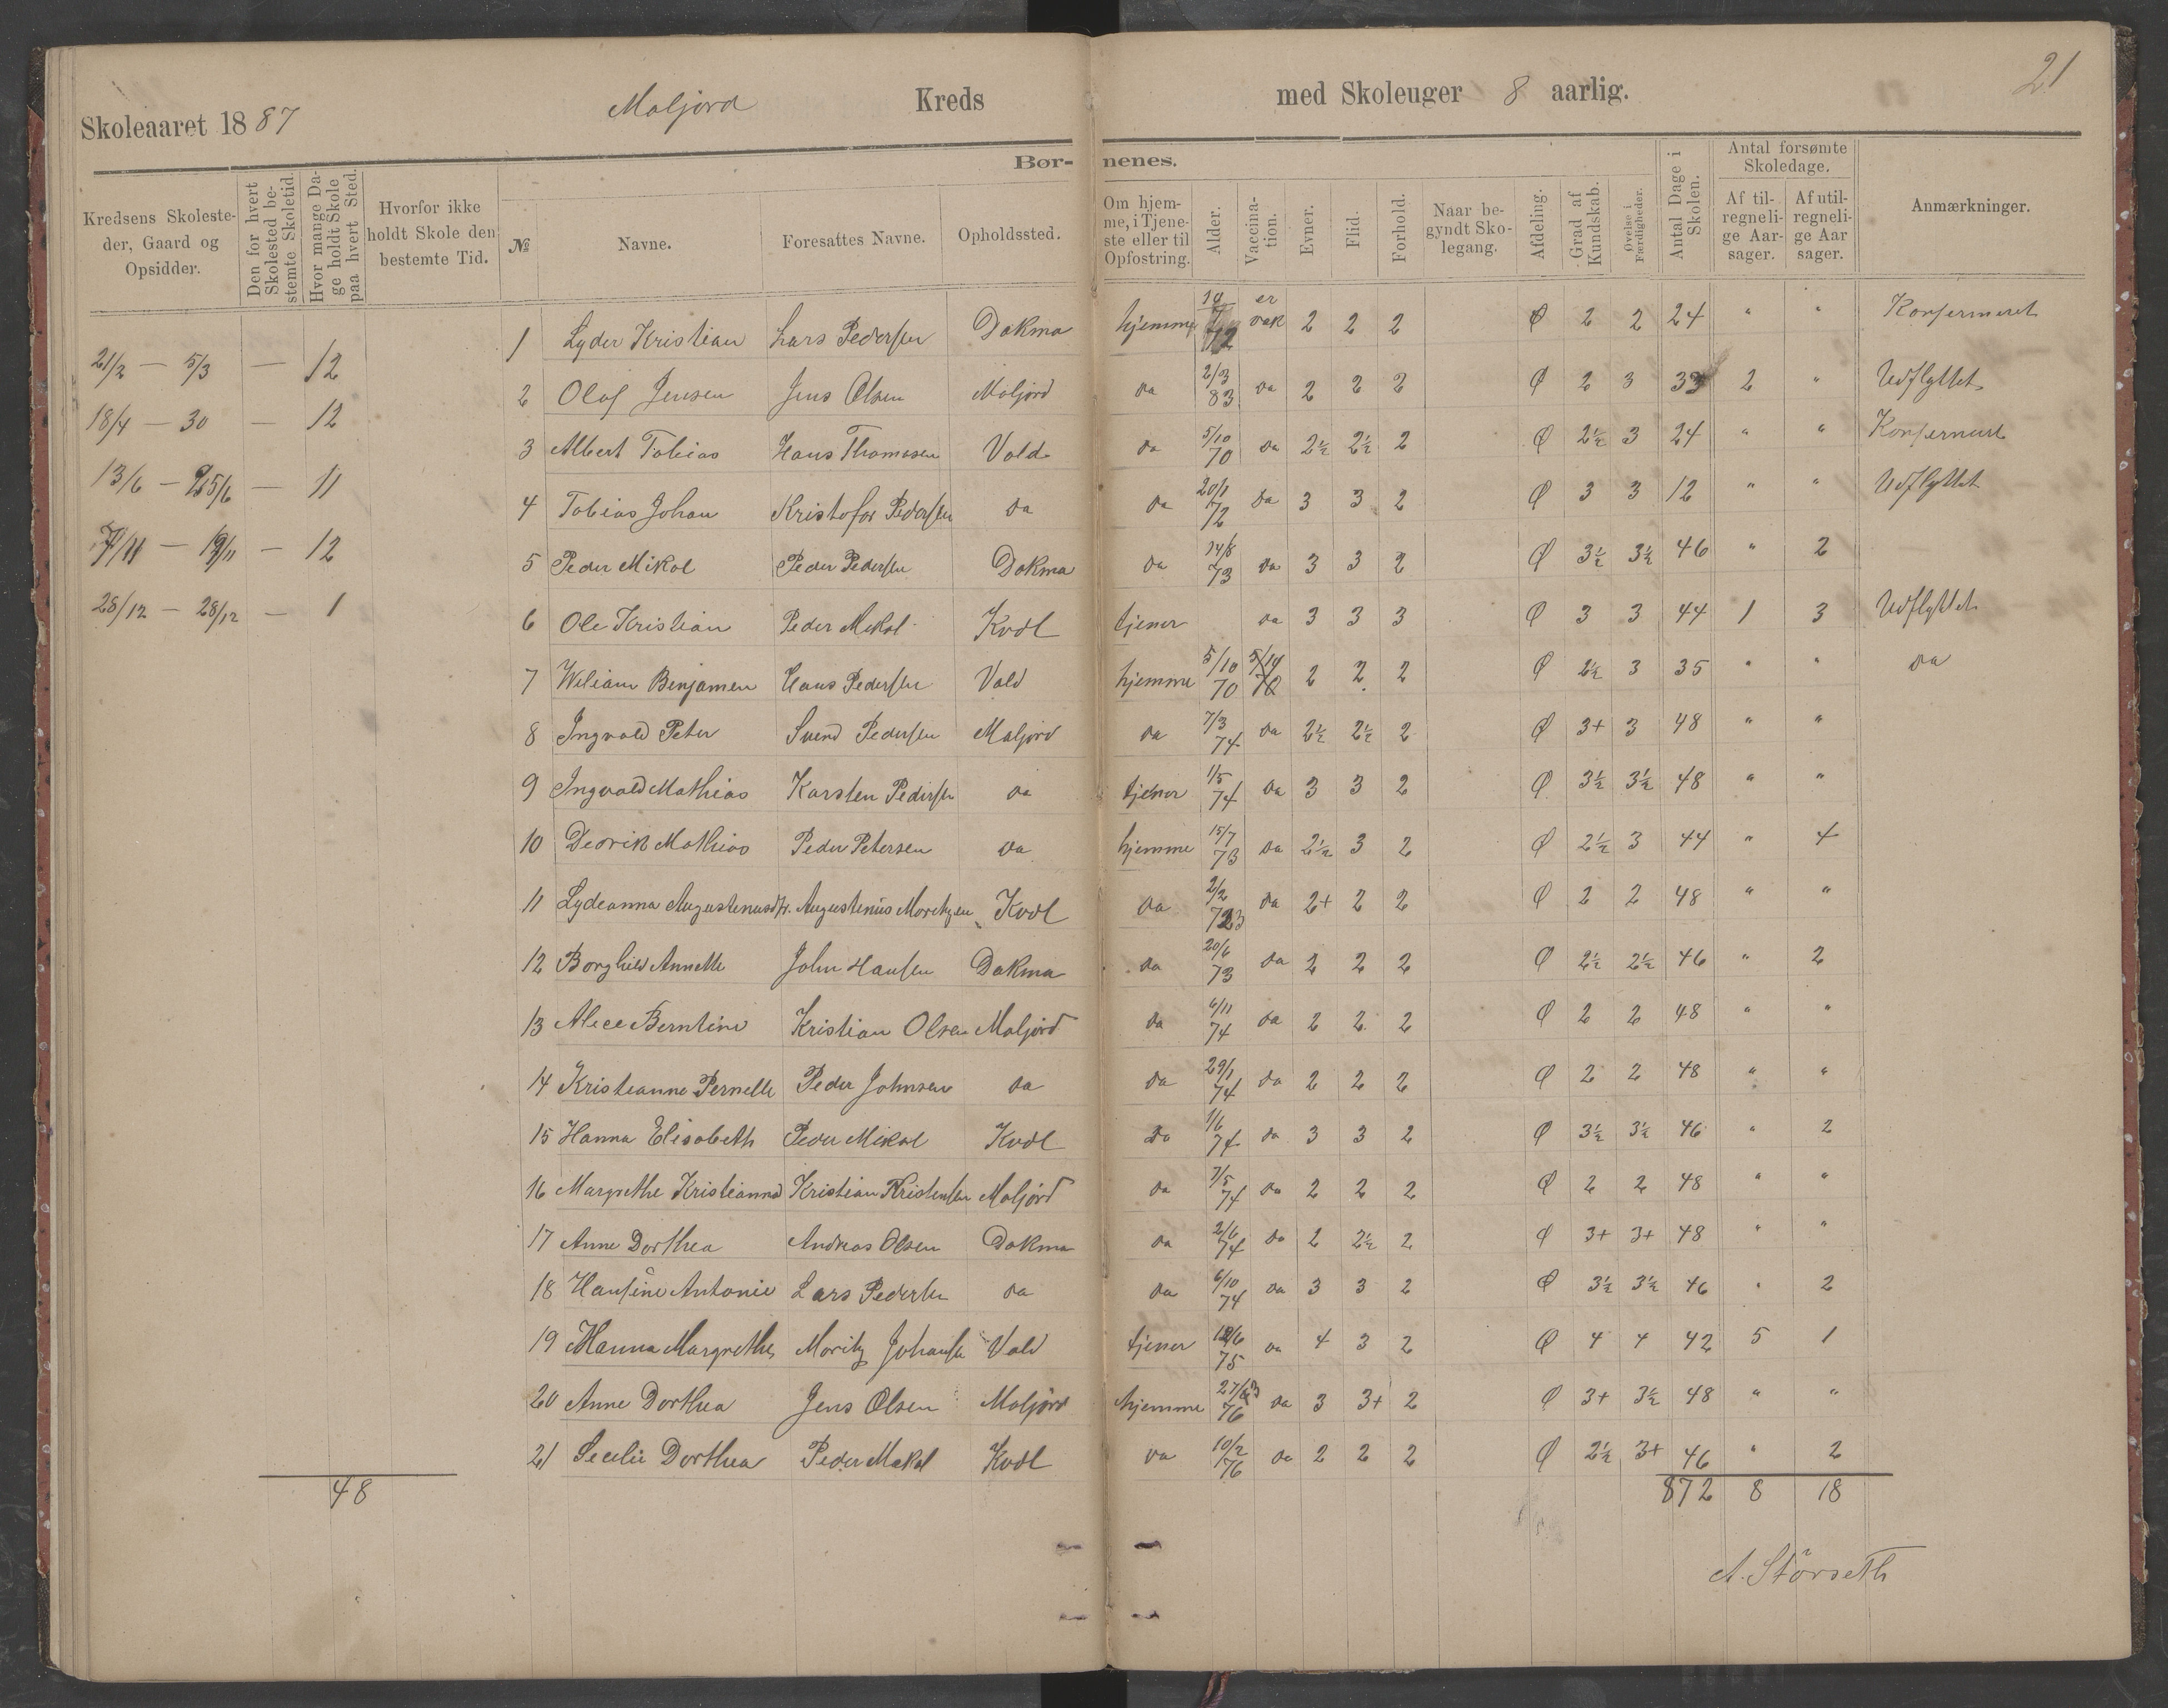 21
Skoleaaret 1887 Maljord Kreds med Skoleuger 8 aarlig.
Børnenes.
Kredsens Skolesteder, Gaard og Opsidder.
Den for hvert Skolested bestemte Skoletid.
Hvor mange Dage holdt Skole paa hvert Sted.
Hvorfor ikke holdt Skole den bestemte Tid.
№
Navne.
Foresattes Navne.
Opholdssted.
Om hjemme, i Tjeneste eller til Opfostring.
Alder.
Vaccination.
Evner.
Flid.
Forhold.
Naar begyndt Skolegang.
Afdeling.
Grad af Kundskab.
Øvelse i Færdigheder.
Antal Dage i Skolen.
Antal forsømte Skoledage.
Af tilregnelige Aarsager.
Af utilregnelige Aarsager.
Anmærkninger.
21/2 — 5/3 — 12
18/4 — 30 — 12
13/6 — 25/6 — 11
7/11 — 19/11 — 12
28/12 — 28/12 — 1
48
1 Lyder Kristian Lars Pedersen Dakma hjemme 72 er vak 2 2 2 Ø 2 2 24 " " Konfermeret
2 Olaf Jensen Jens Olsen Maljord da 2/3 83 da 2 2 2 Ø 2 3 33 2 " Udflyttet
3 Albert Tobias Hans Thomasen Vald da 5/10 70 da 2½ 2½ 2 Ø 2½ 3 24 " " Konfermert
4 Tobias Johan Kristofor Pedersen da da 20/1 72 da 3 3 2 Ø 3 3 12 " " Udflyttet
5 Peder Mikal Peder Pedersen Dakma da 14/8 73 da 3 3 2 Ø 3½ 3½ 46 " 2
6 Ole Kristian Peder Mikal Kvdl tjener da 3 3 3 Ø 3 3 44 1 3 Udflyttet
7 Wiliam Benjamen Hans Pedersen Vald hjemme 5/10 70 2 2 2 Ø 2½ 3 35 " " da
8 Ingvald Peter Svend Pedersen Maljord da 7/3 74 da 2½ 2½ 2 Ø 3+ 3 48 " "
9 Ingvald Mathias Karsten Pedersen da tjener 1/5 74 da 3 3 2 Ø 3½ 3½ 48 " "
10 Dedrik Mathias Peder Petersen da hjemme 15/7 73 da 2½ 3 2 Ø 2½ 3 44 " 4
11 Lydeanna Augustenusdtr. Augustenus Moritzen Kvdl da 2/2 73 da 2+ 2 2 Ø 2 2 48 " "
12 Borghild Annette John Hansen Dakma da 20/6 73 da 2 2 2 Ø 2½ 2½ 46 " 2
13 Alice Berntine Kristian Olsen Maljord da 6/11 74 da 2 2 2 Ø 2 2 48 " "
14 Kristianne Pernelle Peder Johnsen da da 29/1 74 da 2 2 2 Ø 2 2 48 " "
15 Hanna Elisabeth Peder Mikal Kvdl da 1/6 74 da 3 3 2 Ø 3½ 3½ 46 " 2
16 Margrethe Kristianna Kristian Kristensen Maljord da 7/5 74 da 2 2 2 Ø 2 2 48 " "
17 Anne Dorthea Andreas Olsen Dakma da 2/6 74 da 2 2½ 2 Ø 3+ 3+ 48 " "
18 Hansine Antonie Lars Pedersen da da 6/10 74 da 3 3 2 Ø 3½ 3½ 46 " 2
19 Hanna Margrethe Moritz Johansen Vald tjener 75 da 4 3 2 Ø 4 4 42 5 1
20 Anne Dorthea Jens Olsen Maljord hjemme 76 da 3 3+ 2 Ø 3+ 3½ 48 " "
21 Secelie Dorthea Peder Mekal Kvdl da 10/2 76 da 2 2 2 Ø 2½ 3+ 46 " 2
872 8 18
A. Störseth